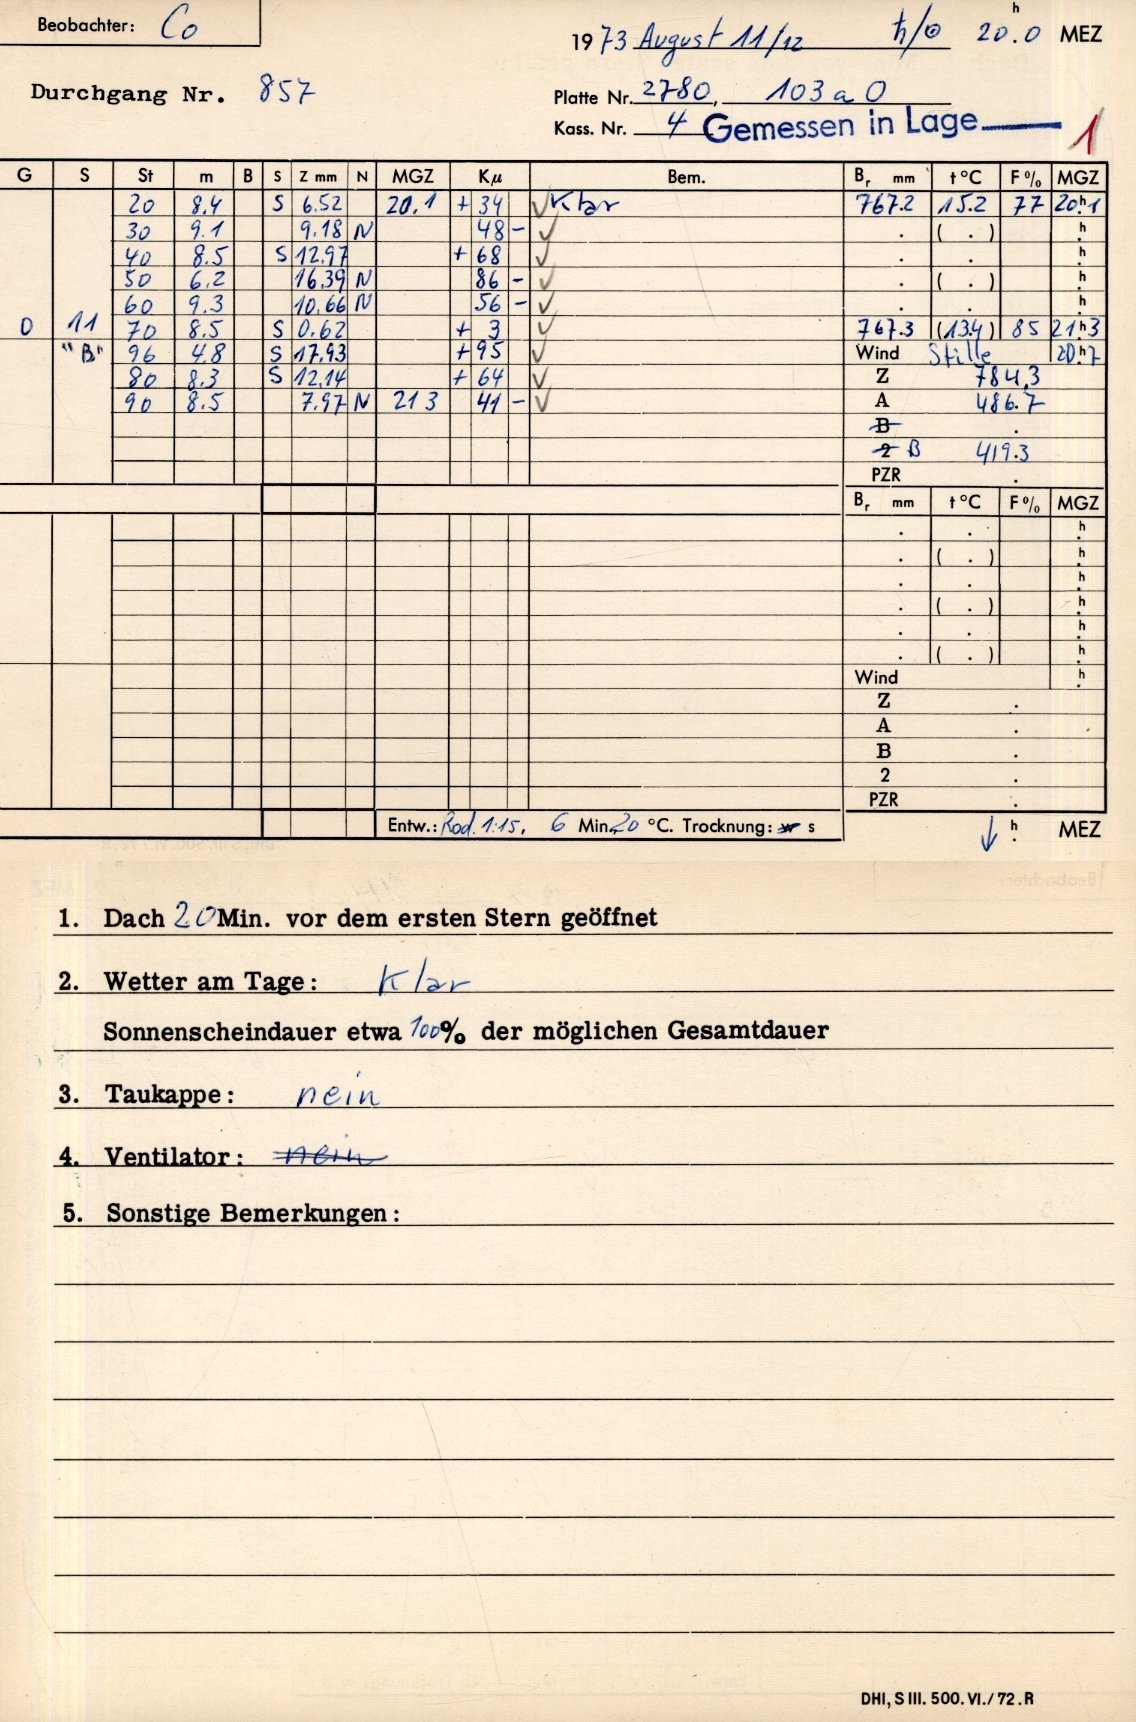 Beobachter: Co
1973 August 11/12 ♄/⊙ 20.0 h MEZ
Durchgang Nr. 857
Platte Nr. 2780, 103 a O
Kass. Nr. 4 Gemessen in Lage 1
G S St m B S Z mm N MGZ Kµ Bem. Br mm t °C F % MGZ
20 8.4 S 6.52 20.1 + 34 ✓ Klar 767.2 15.2 77 20h1
30 9.1 9.18 N 48 - ✓ . ( . ) h.
40 8.5 S 12.97 + 68 ✓ . . h.
50 6.2 16.39 N 86 - ✓ . ( . ) h.
60 9.3 10.66 N 56 - ✓ . . h.
0 11 70 8.5 S 0.62 + 3 ✓ 767.3 (13.4) 85 21h3
"B" 96 4.8 S 17.93 + 95 ✓ Wind Stille 20h7
80 8.3 S 12.14 + 64 ✓ Z 784.3
90 8.5 7.97 N 21 3 41 - ✓ A 486.7
B .
2 B 419.3
PZR .
Br mm t °C F % MGZ
. . h.
. ( . ) h.
. . h.
. ( . ) h.
. . h.
. ( . ) h.
Wind h.
Z .
A .
B .
2 .
PZR .
Entw.: Rod. 1:15, 6 Min. 20 °C. Trocknung: w s ↓ h. MEZ
1. Dach 20 Min. vor dem ersten Stern geöffnet
2. Wetter am Tage: Klar
Sonnenscheindauer etwa 100% der möglichen Gesamtdauer
3. Taukappe: nein
4. Ventilator: nein
5. Sonstige Bemerkungen:
DHI, S III. 500. VI. / 72. R